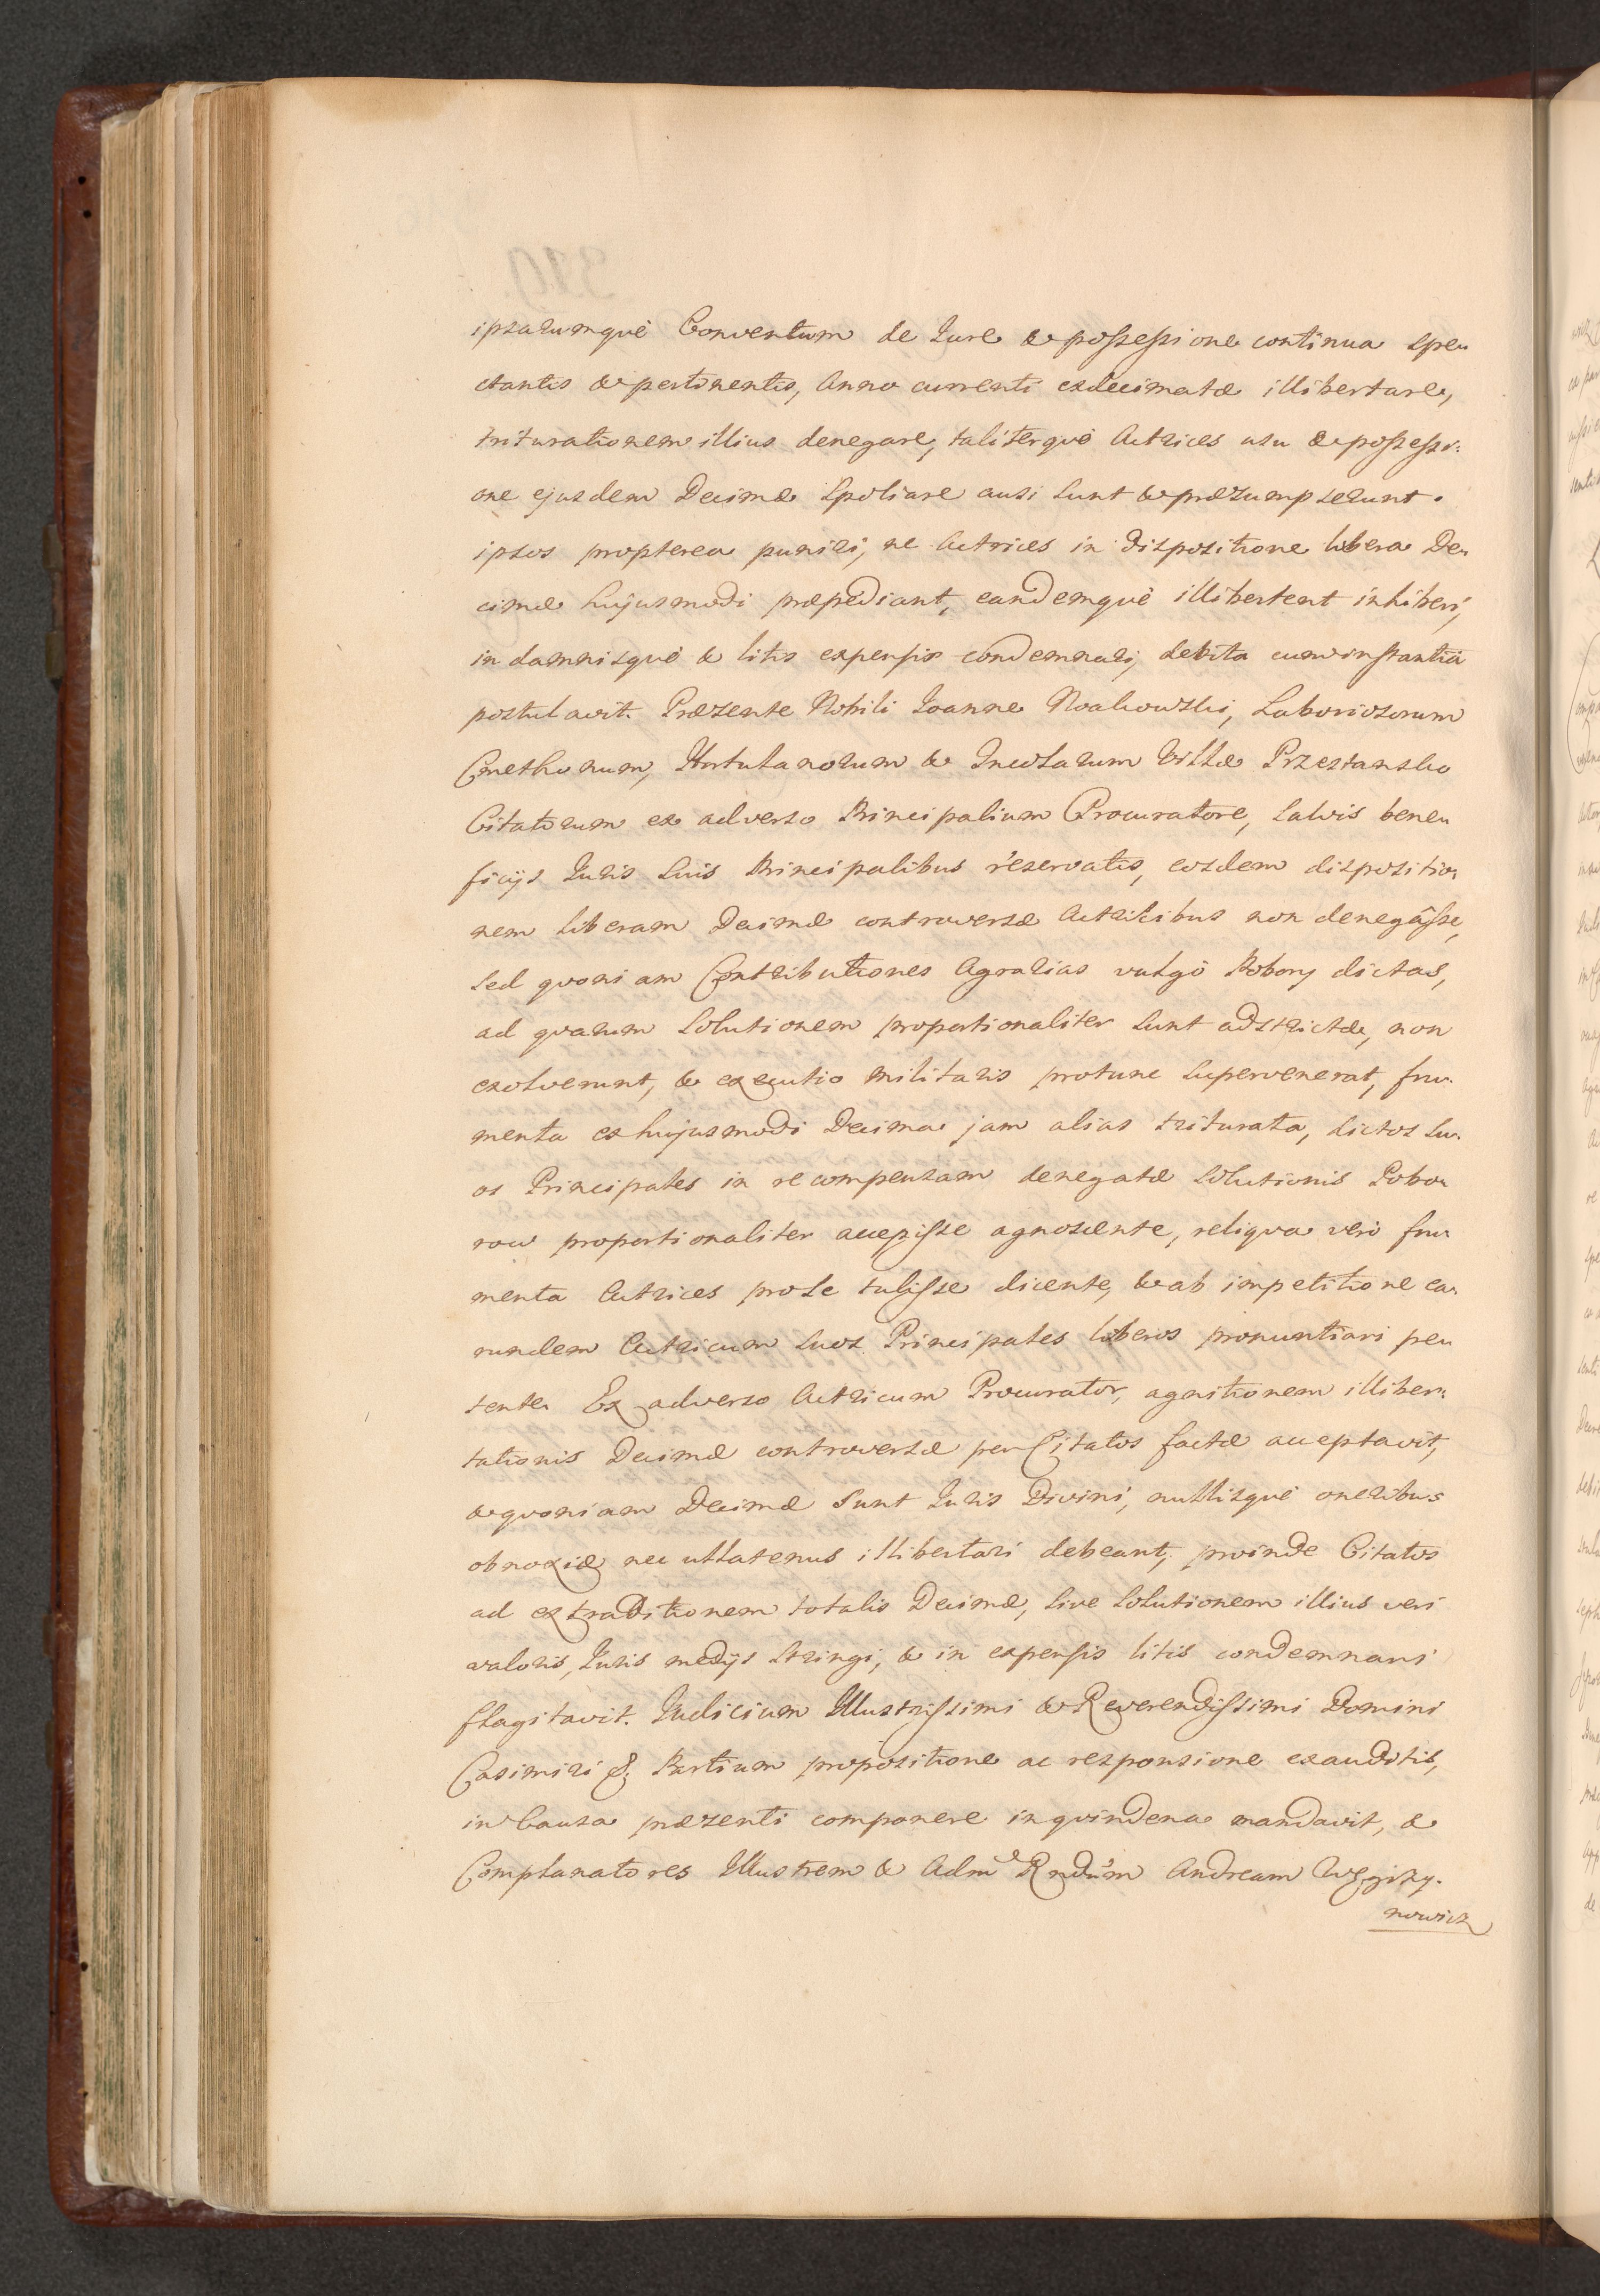 ipsarumquè Conventum de Jure & possessione continua spe„
ctantis & pertinentis, Anno currenti exdecimatæ illibertare,
triturationem illius denegare, taliterquè Actrices usu & possessi„
one ejusdem Decimæ Spoliare ausi sunt & præsumpserunt.
ipsos propterea puniri, ne Actrices in dispositione libera De„
cimæ hujusmodi præpediant, eandemquè illibertent inhiberi,
in damnisquè & litis expensis condemnari, debita cum instantiâ
postulavit. Præsente Nobili Joanne Noakowski, Laboriosorum
Cmethonum, Hortulanorum & Incolarum Villæ Przestansko
Citatorum ex adverso Principalium Procuratore, Salvis bene„
ficijs Juris Suis Principalibus reservatis, eosdem dispositio„
nem liberam Decimæ controversæ Actricibus non denegâsse,
Sed quoniam Contributiones Agrarias vulgò Pobory dictas,
ad quarum Solutionem proportionaliter Sunt adstrictæ, non
exolverunt, & executio Militaris protunc Supervenerat, fru„
menta ex hujusmodi Decima jam alias triturata, dictos Su„
os Principales in recompensam denegatæ Solutionis Pobo„
row proportionaliter accepisse agnoscente, reliqua verò fru„
menta Actrices pro Se tulisse dicente, & ab impetitione ea„
rundem Actricum Suos Principales liberos pronuntiari pe„
tente. Ex adverso Actricum Procurator, agnitionem illiber„
tationis Decimæ controversæ per Citatos factæ acceptavit,
& quoniam Decimæ Sunt Juris Divini, nullisquè oneribus
obnoxiæ nec ullatenus illibertari debeant, proinde Citatos
ad extraditionem totalis Decimæ, Sive Solutionem illius veri
valoris, Juris medijs Stringi, & in expensis litis condemnari
flagitavit. Judicium Illustrissimi & Reverendissimi Domini
Casimiri &. Partium propositione ac responsione exauditis,
in Causa præsenti componere in quindena mandavit, &
Complanatores Illustrem & Admᵉ Rndum Andream Węgrzy„
nowicz